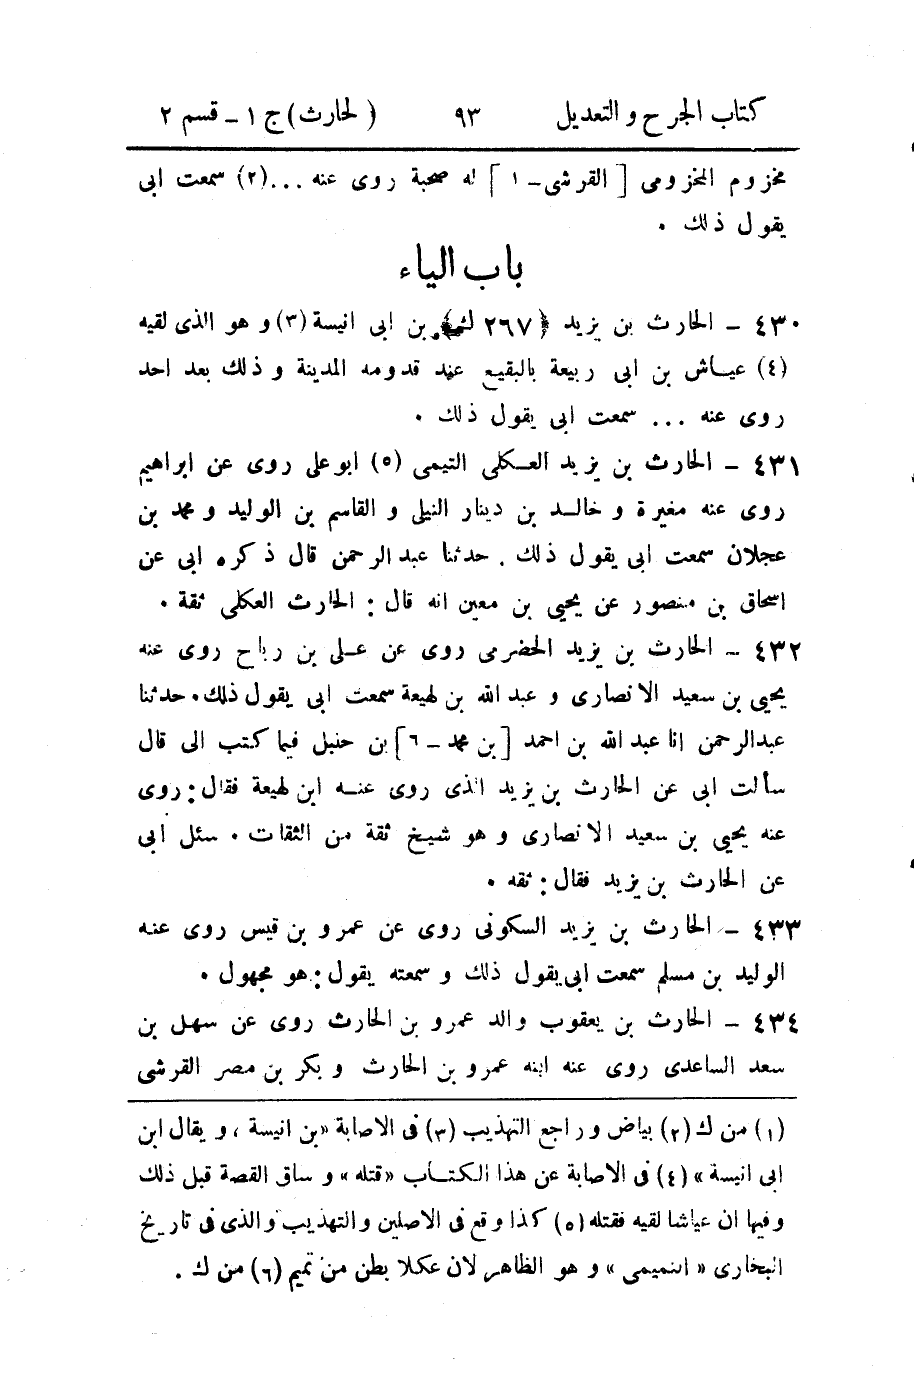 كتاب الجرح والتعديل ٩٣ (الحارث) ج ١ - قسم ٢
مخزوم المخزومى [ القرشى - ١ ] له صحبة روى عنه ...(٢) سمعت ابى
يقول ذلك .
باب الياء
٤٣٠ - الحارث بن يزيد ﴿ ٢٦٧ ك ﴾ بن ابى انيسة (٣) و هو الذى لقيه
(٤) عياش بن ابى ربيعة بالبقيع عند قدومه المدينة و ذلك بعد احد
روى عنه ... سمعت ابى يقول ذلك .
٤٣١ - الحارث بن يزيد العكلى التيمى (٥) ابو على روى عن ابراهيم
روى عنه مغيرة و خالد بن دينار النيلى و القاسم بن الوليد و محمد بن
عجلان سمعت ابى يقول ذلك . حدثنا عبد الرحمن قال ذكره ابى عن
اسحاق بن منصور عن يحيى بن معين انه قال : الحارث العكلى ثقة .
٤٣٢ - الحارث بن يزيد الحضرمى روى عن على بن رباح روى عنه
يحيى بن سعيد الانصارى و عبد الله بن لهيعة سمعت ابى يقول ذلك . حدثنا
عبد الرحمن انا عبد الله بن احمد [ بن محمد - ٦ ] بن حنبل فيما كتب الى قال
سألت ابى عن الحارث بن يزيد الذى روى عنه ابن لهيعة فقال : روى
عنه يحيى بن سعيد الانصارى و هو شيخ ثقة من الثقات . سئل ابى
عن الحارث بن يزيد فقال : ثقه .
٤٣٣ - الحارث بن يزيد السكونى روى عن عمرو بن قيس روى عنه
الوليد بن مسلم سمعت ابى يقول ذلك و سمعته يقول : هو مجهول .
٤٣٤ - الحارث بن يعقوب والد عمرو بن الحارث روى عن سهل بن
سعد الساعدى روى عنه ابنه عمرو بن الحارث و بكر بن مصر القرشى
(١) من ك (٢) بياض و راجع التهذيب (٣) فى الاصابة «بن انيسة ، و يقال ابن
ابى انيسة » (٤) فى الاصابة عن هذا الكتاب «قتله» و ساق القصة قبل ذلك
وفيها ان عياشا لقيه فقتله (٥) كذا وقع فى الاصلين والتهذيب والذى فى تاريخ
البخارى « التميمى » و هو الظاهر لان عكلا بطن من تميم (٦) من ك .